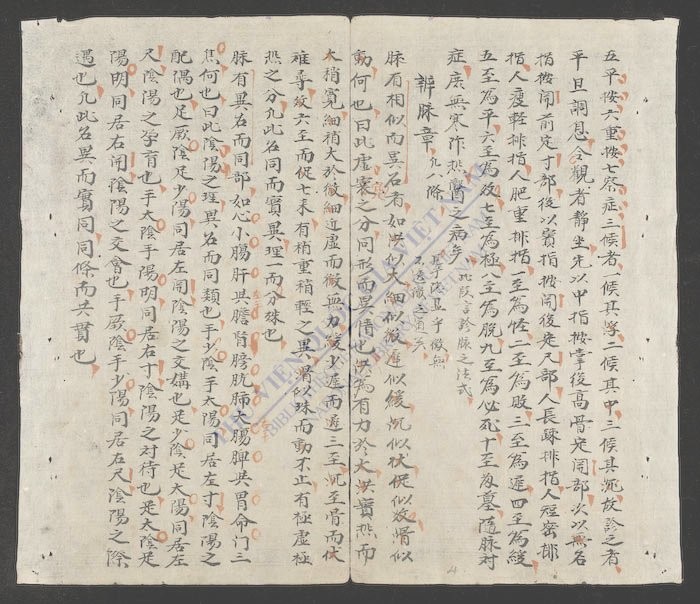 五平按六重按七察症三候者一候其浮二候其中三候其沉故診之者
平旦調息令觀者靜坐先以中指按掌後高骨定関部次以無名
指按関前定寸部後以實指按関後定尺部人長疎排指人短密排
指人瘦輕排指人肥重排指一至為怪二至為敗三至為遲四至為緩
五至為平六至為数七至為極八至為脫九至為必死十至為墓隨脉对
症庶無寒作熱醫之病矣
此段言診脉之法式
辨脉章 凡八條
脉有相似而異名者如洪似大細似微遲似緩沉似伏促似数滑似
動何也曰此虛實之分同形而異情也洪為有力於大洪實然而
大稍寬細稍大於微細近虛而微無力緩少遲而遲三至沉至骨而伏
难尋数六至而促七来有稍重稍輕之異滑似珠而動不止有極虛極
热之分凢此名同而實異理一而分殊也
脉有異名而同部如心小腸肝共膽腎膀胱肺大腸脾共胃命门三
焦何也曰此陰陽之理異名而同類也手少陰手太陽同居左寸陰陽之
配偶也足厥陰足少陽同居左関陰陽之交媾也足少陰足太陽同居左
尺陰陽之孕育也手太陰手陽明同居右寸陰陽之对待也足太陰足
陽明同居右関陰陽之交會也手厥陰手少陽同居右尺陰陽之際
遇也凢此名異而實同同條而共貫也
PHU VIEN QUOC GIA VIET NAM